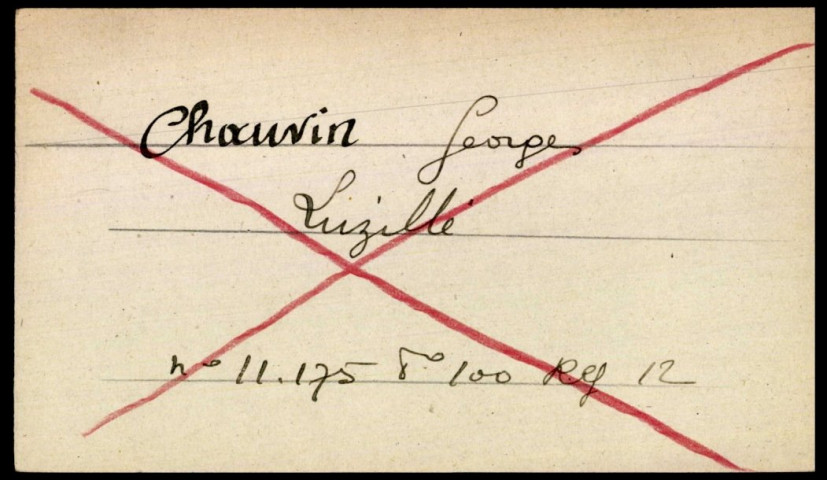 Chauvin Georges
Luzillé
no 11.175 fo 100 Reg 12